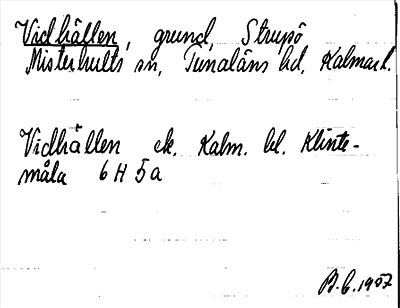 Vidhällen, grund, Strupö
Misterhults sn, Tunaläns hd, Kalmar l.
Vidhällen ek. Kalm. bl. Klinte-
måla 6 H 5a
B.G. 1957